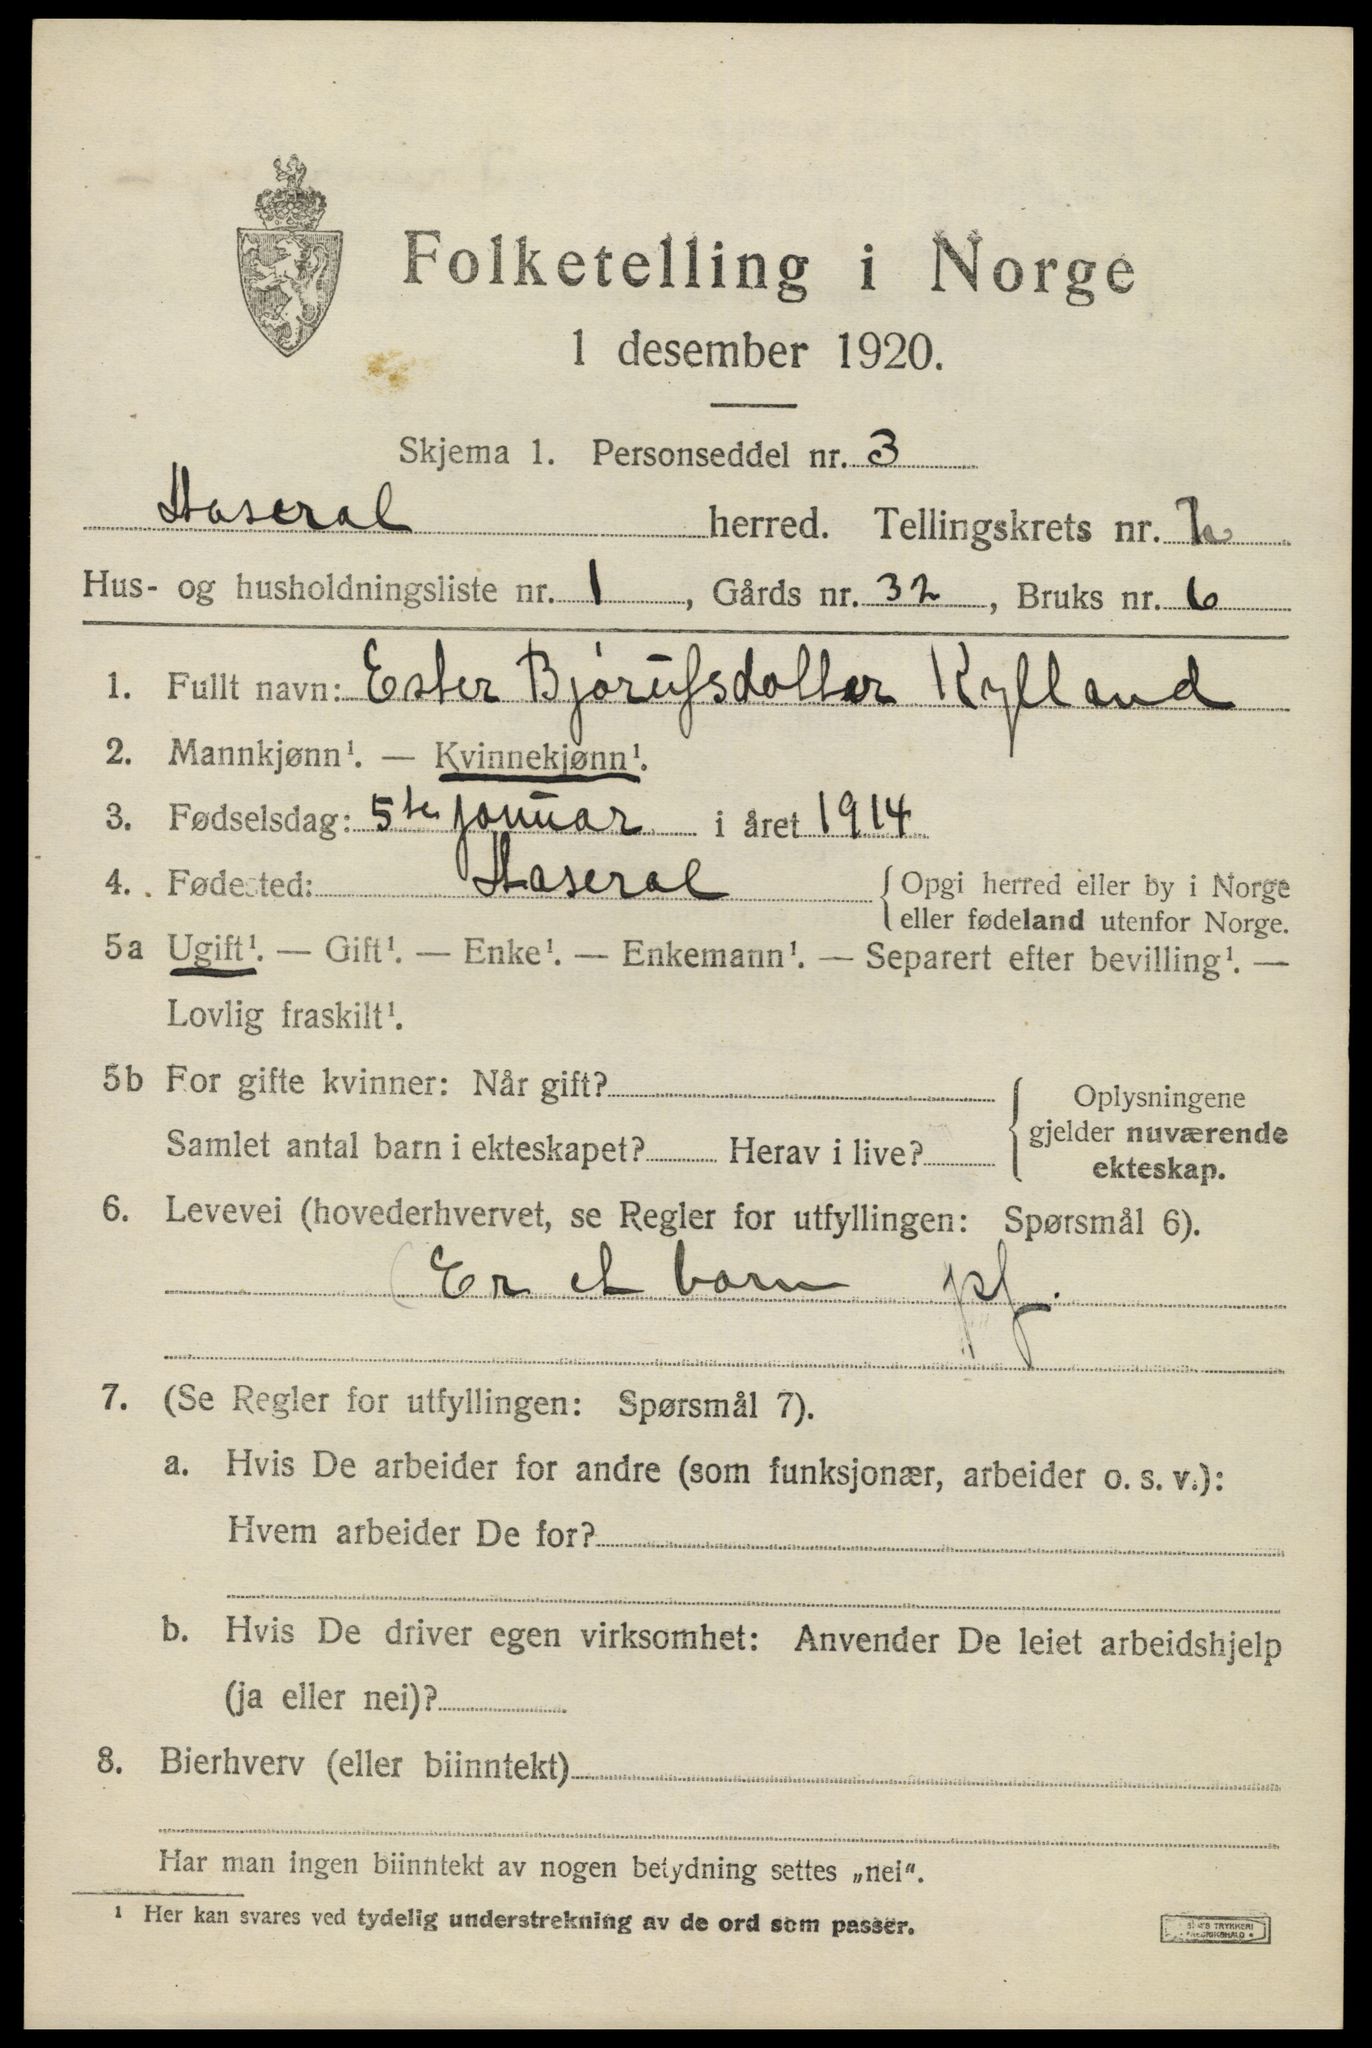 Folketelling i Norge
1 desember 1920.
Skjema 1. Personseddel nr. 3
Haseral herred. Tellingskrets nr.
Hus- og husholdningsliste nr. 1, Gårds nr. 32, Bruks nr. 6
1. Fullt navn: Ester Bjørufsdotter Kylland
2. Mannkjønn¹. — Kvinnekjønn¹.
3. Fødselsdag: 5te januar i året 1914
4. Fødested: Haseral {Opgi herred eller by i Norge
eller fødeland utenfor Norge.
5a Ugift¹. — Gift¹. — Enke¹. — Enkemann¹. — Separert efter bevilling¹. —
Lovlig fraskilt¹.
5b For gifte kvinner: Når gift?
Samlet antal barn i ekteskapet? Herav i live?
{Oplysningene
gjelder nuværende
ekteskap.
6. Levevei (hovederhvervet, se Regler for utfyllingen: Spørsmål 6).
Er et barn pf.
7. (Se Regler for utfyllingen: Spørsmål 7).
a. Hvis De arbeider for andre (som funksjonær, arbeider o. s. v.):
Hvem arbeider De for?
b. Hvis De driver egen virksomhet: Anvender De leiet arbeidshjelp
(ja eller nei)?
8. Bierhverv (eller biinntekt)
Har man ingen biinntekt av nogen betydning settes „nei".
¹ Her kan svares ved tydelig understrekning av de ord som passer.
TRYKKERI